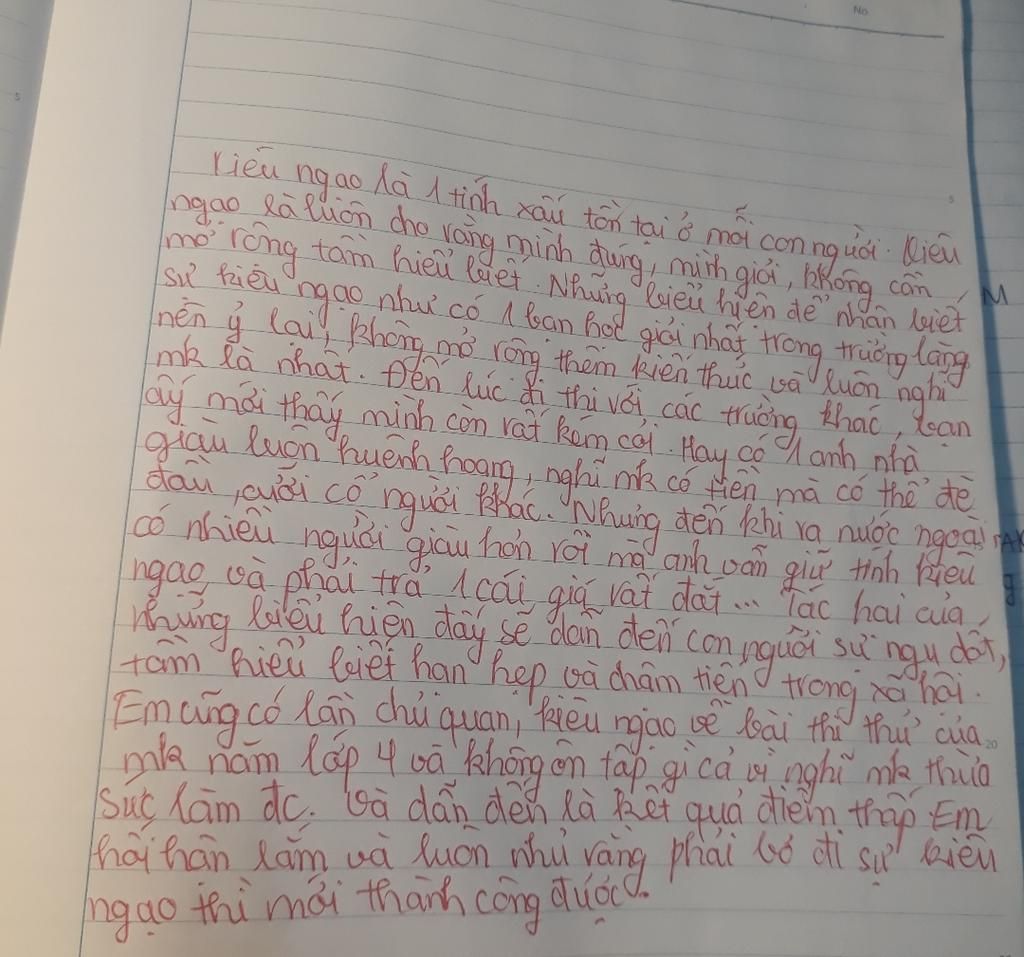 No
Kiêu ngạo là 1 tính xấu tồn tại ở mỗi con người. Kiêu
ngạo là luôn cho rằng mình đúng, mình giỏi, không cần
mở rộng tầm hiểu biết. Những biểu hiện để nhận biết
sự kiêu ngạo như có 1 bạn học giỏi nhất trong trường làng
nên ỷ lại, không mở rộng thêm kiến thức và luôn nghĩ
mk là nhất. Đến lúc đi thi với các trường khác, bạn
ấy mới thấy mình còn rất kém cỏi. Hay có 1 anh nhà
giàu luôn huênh hoang, nghĩ mk có tiền mà có thể đè
đầu, cưỡi cổ người khác. Nhưng đến khi ra nước ngoài
có nhiều người giàu hơn rồi mà anh vẫn giữ tính kiêu
ngạo và phải trả 1 cái giá rất đắt... Tác hại của
những biểu hiện đấy sẽ dẫn đến con người sự ngu dốt,
tầm hiểu biết hạn hẹp và chậm tiến trong xã hội.
Em cũng có lần chủ quan, kiêu ngạo về bài thi thử của
mk năm lớp 4 và không ôn tập gì cả vì nghĩ mk thừa
sức làm đc. Và dẫn đến là kết quả điểm thấp. Em
hối hận lắm và luôn nhủ rằng phải bỏ đi sự kiêu
ngạo thì mới thành công được.